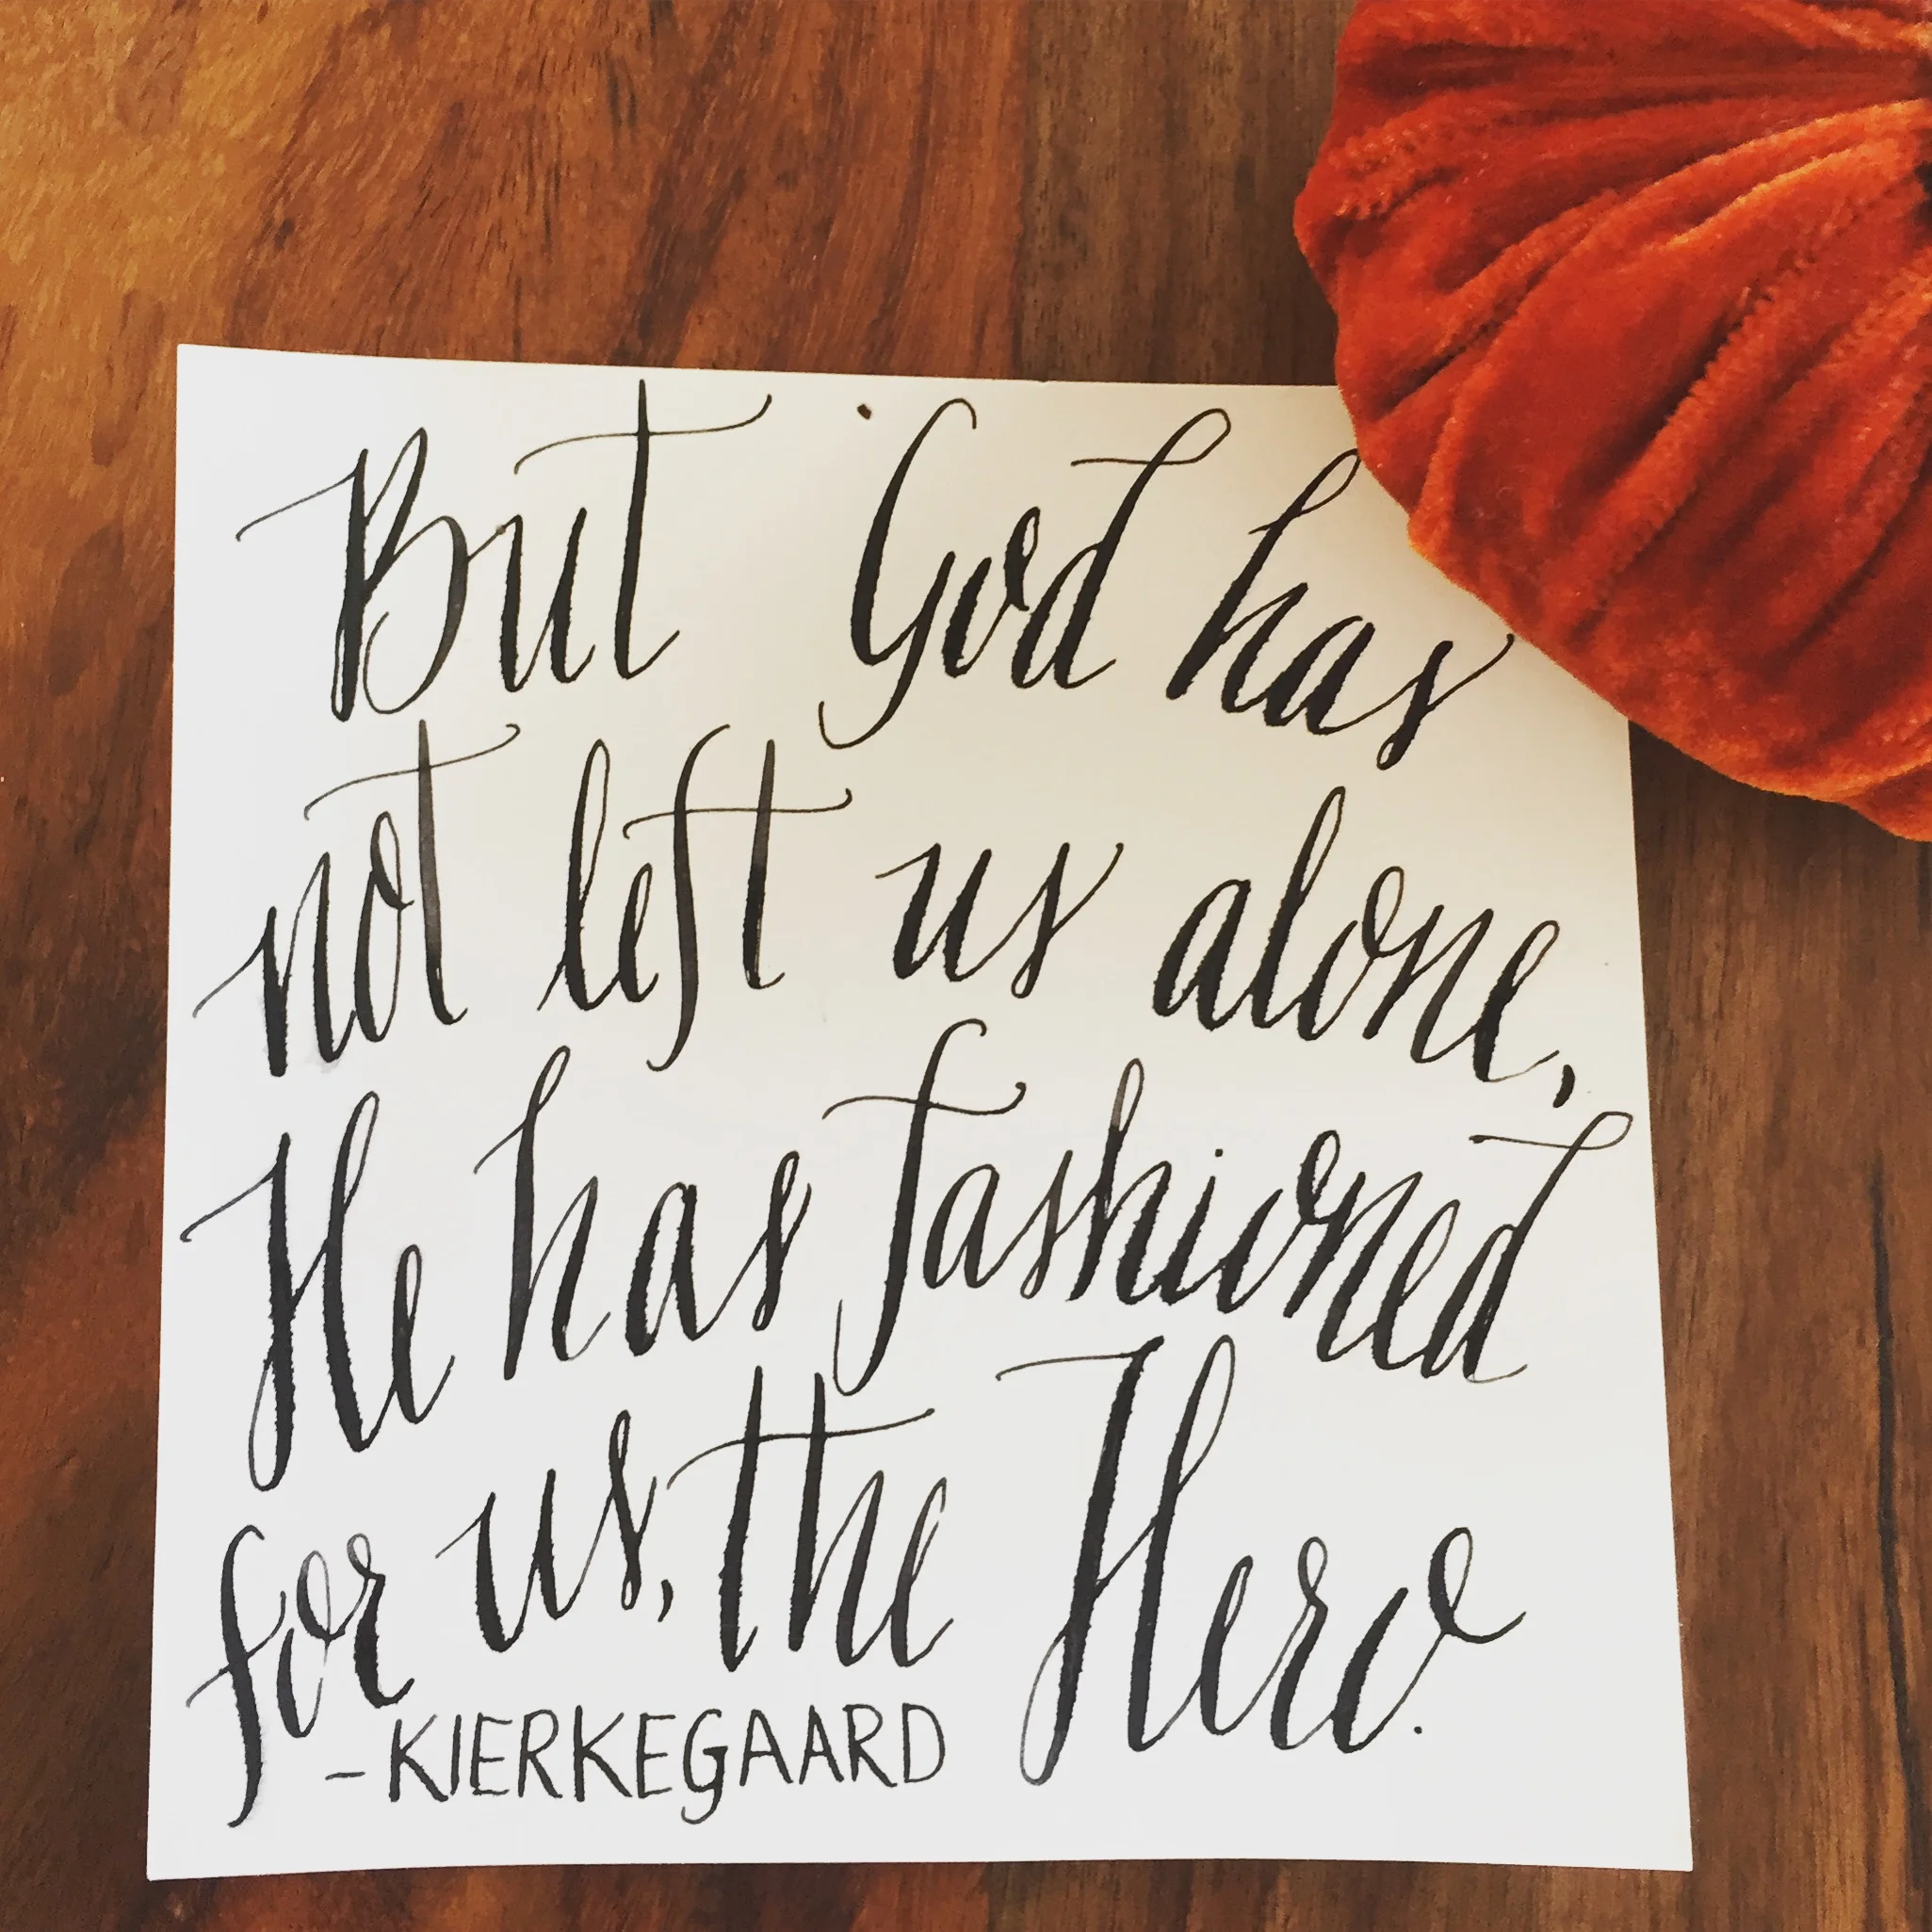 But God has
not left us alone,
He has fashioned
for us, the Hero.
-KIERKEGAARD